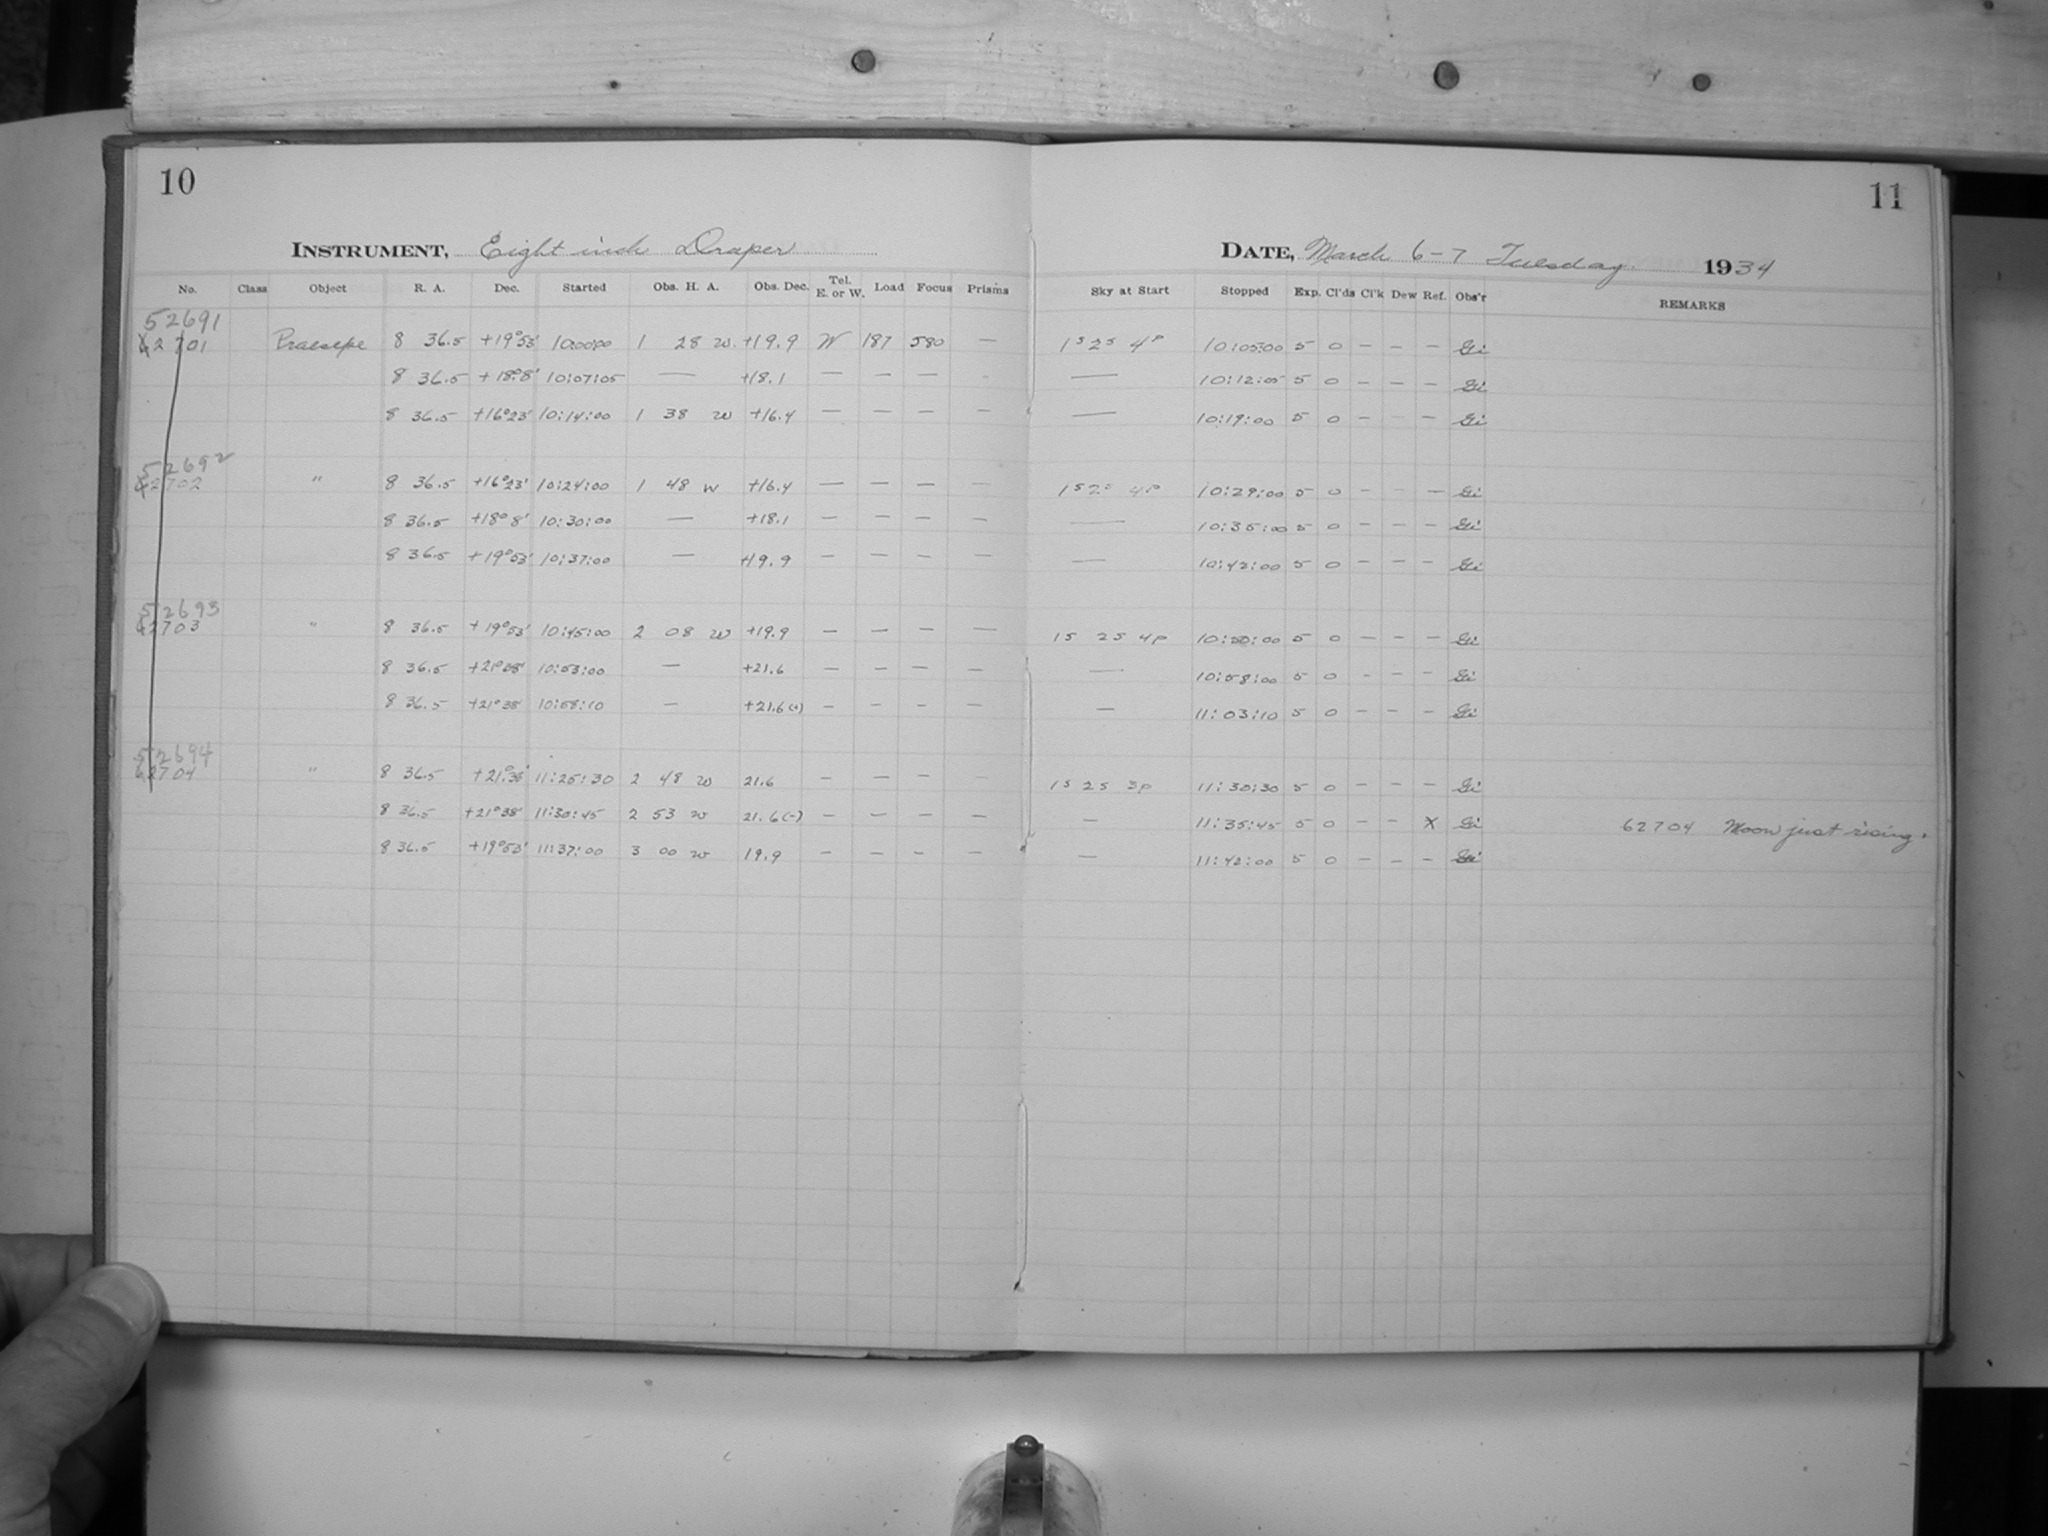 10
11
INSTRUMENT, Eight inch Draper
DATE, March 6-7 Tuesday 1934
No. Class Object R. A. Dec. Started Obs. H. A. Obs. Dec. Tel. E. or W. Load Focus Prisms Sky at Start Stopped Exp. Cl'ds Cl'k Dew Ref. Obs'r REMARKS
52691
2701 Praesepe 8 36.5 +19°53' 10:00:00 1 28 W. +19.9 W 187 580 — 1s 2s 4p 10:05:00 5 0 — — — Gi
8 36.5 +18°8' 10:07:05 — +18.1 — — — - — 10:12:05 5 0 - - - Gi
8 36.5 +16°23' 10:14:00 1 38 W +16.4 — — — — — 10:19:00 5 0 — - — Gi
52692
2702 " 8 36.5 +16°23' 10:24:00 1 48 W +16.4 — — — — 1s 2s 4p 10:29:00 5 0 — - — Gi
8 36.5 +18°8' 10:30:00 — +18.1 — — — — — 10:35:00 5 0 — — — Gi
8 36.5 +19°53' 10:37:00 — +19.9 — — — — — 10:42:00 5 0 — — — Gi
52693
2703 " 8 36.5 +19°53' 10:45:00 2 08 W +19.9 — — — — 1s 2s 4p 10:50:00 5 0 — — — Gi
8 36.5 +21°38' 10:53:00 — +21.6 — — — — — 10:58:00 5 0 - — — Gi
8 36.5 +21°38' 10:58:10 — +21.6(-) — — — — — 11:03:10 5 0 — — — Gi
52694
62704 " 8 36.5 +21°38' 11:25:30 2 48 W 21.6 — — — — 1s 2s 3p 11:30:30 5 0 — — — Gi
8 36.5 +21°38' 11:30:45 2 53 W 21.6(-) — — — — — 11:35:45 5 0 — — X Gi 62704 Moon just rising.
8 36.5 +19°53' 11:37:00 3 00 W 19.9 — — — — — 11:42:00 5 0 — — — Gi